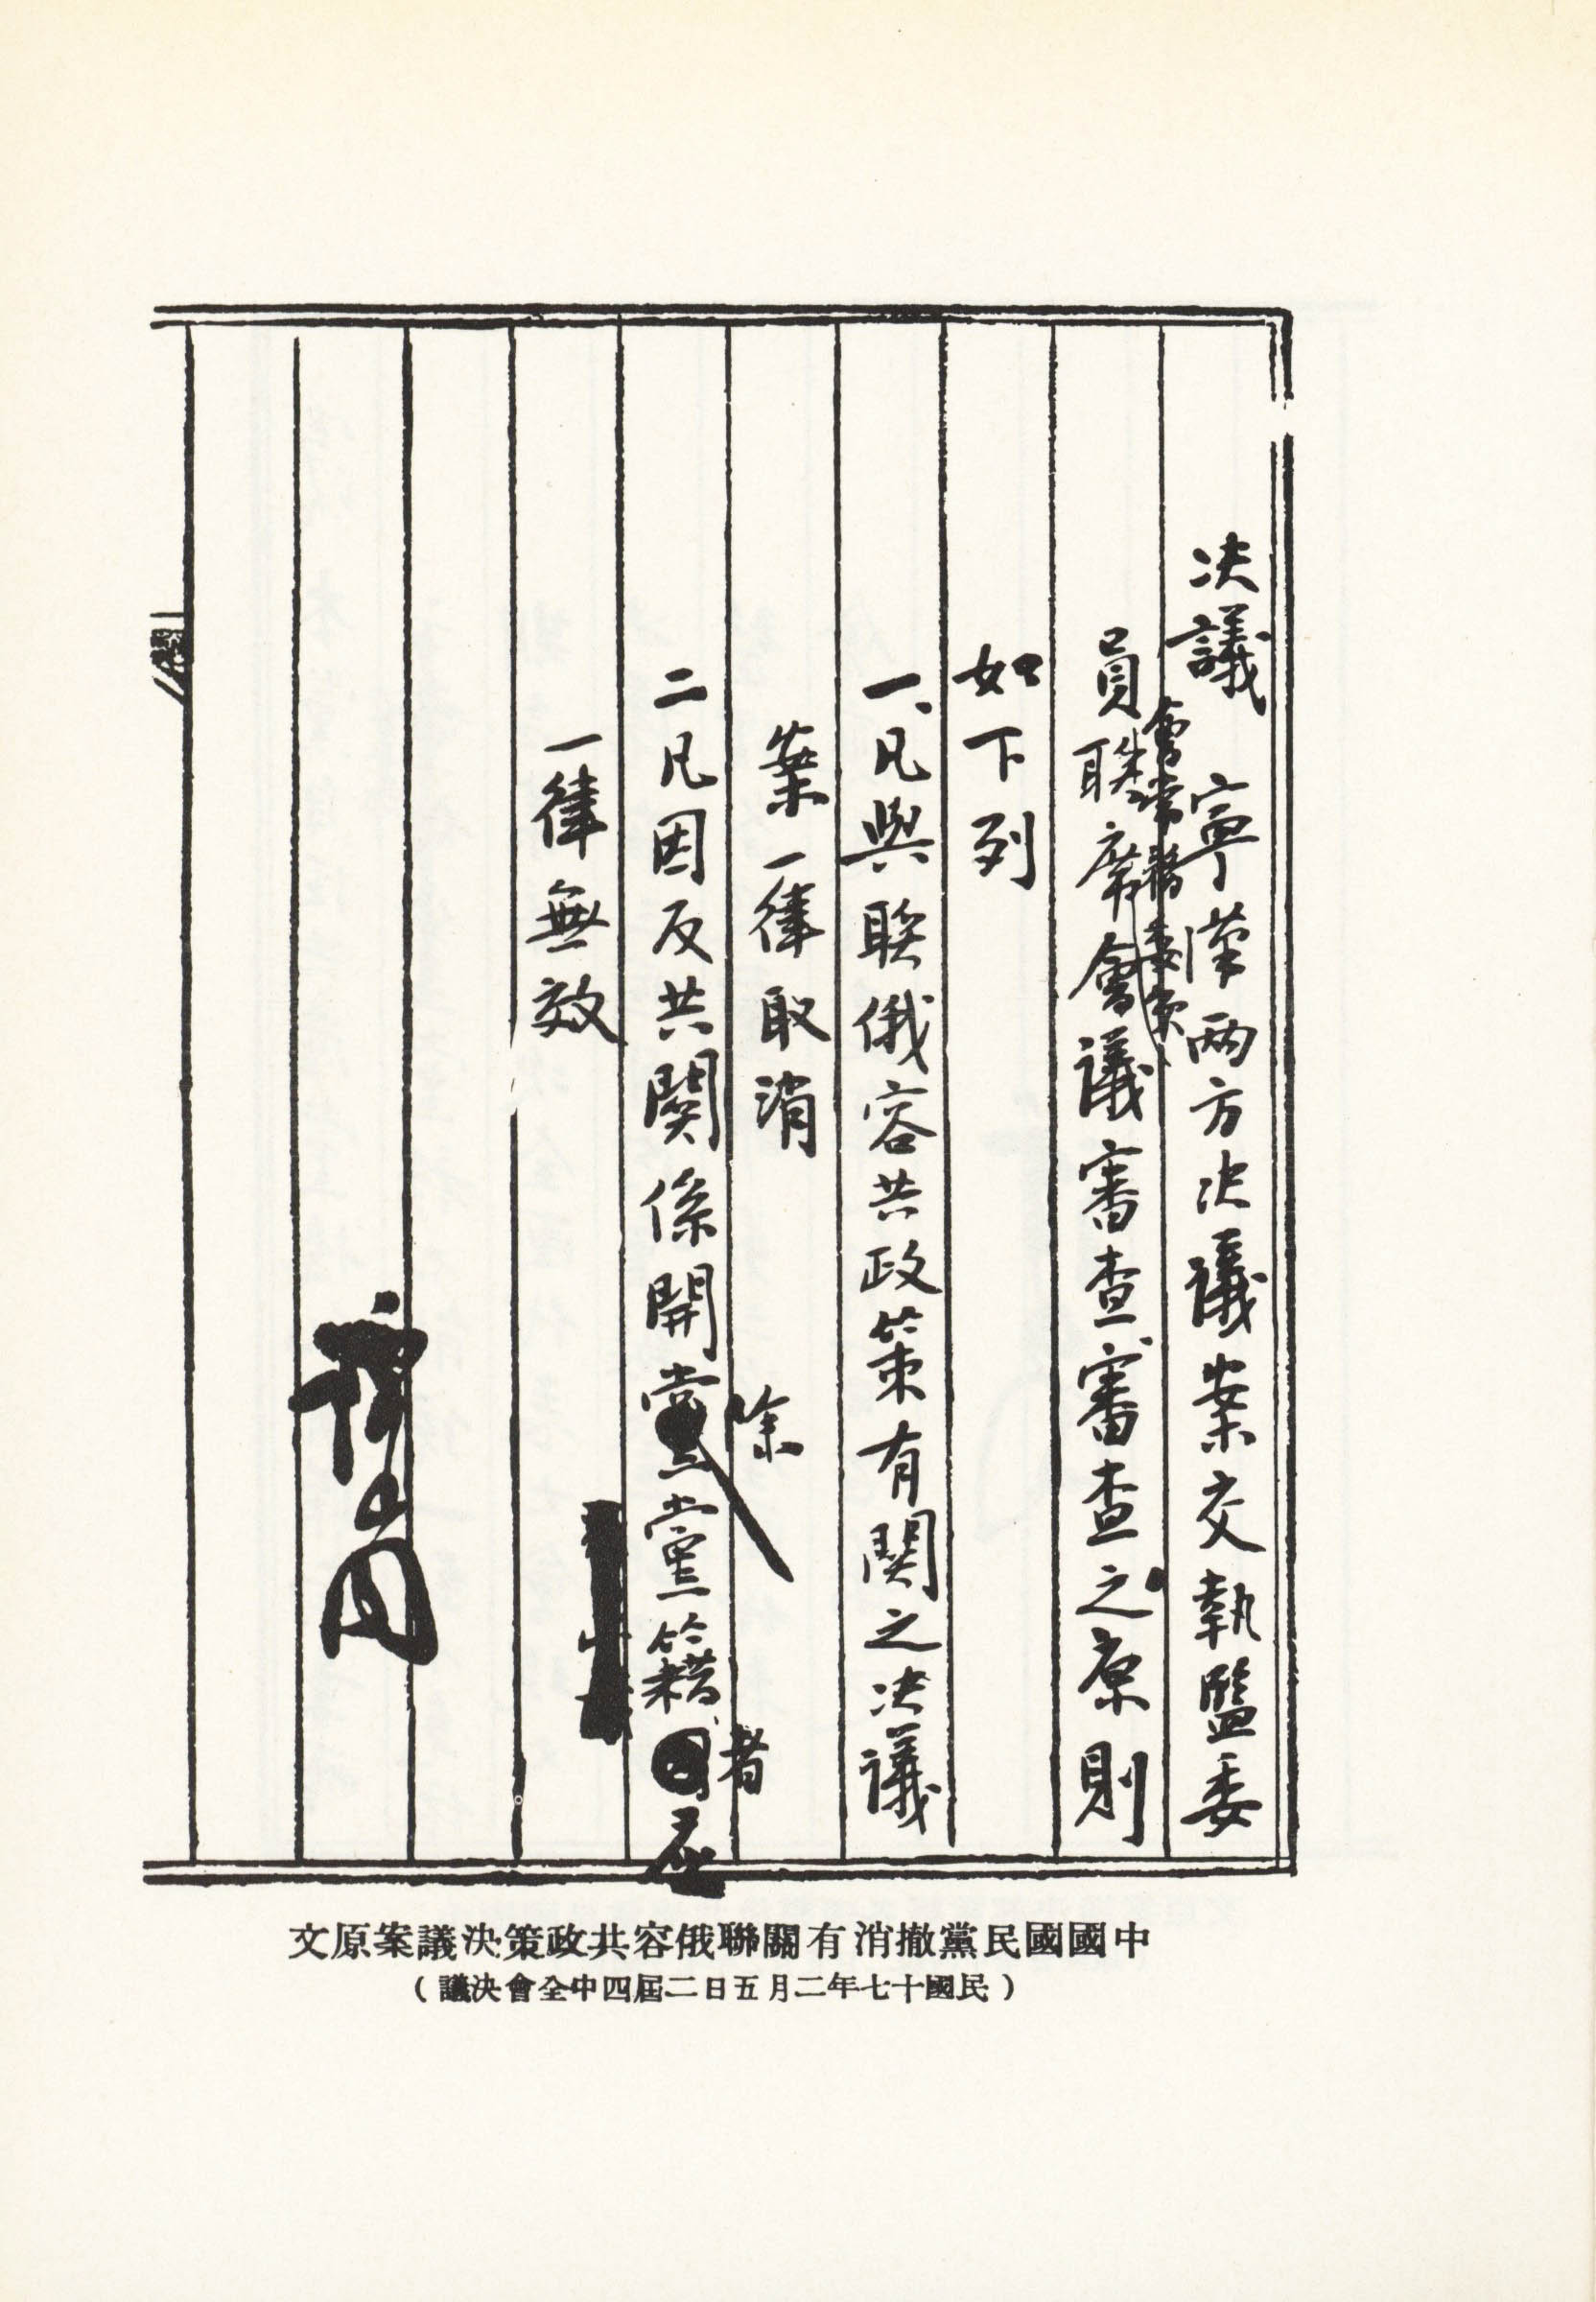 決議　寧漢兩方決議案交執監委
會常務委
員聯席會議審查審查之原則
如下列
一、凡與聯俄容共政策有關之決議
案一律取消
二凡因反共關係開除黨籍者
一律無效
中國國民黨撤消有關聯俄容共政策決議案原文
（民國十七年二月五日二屆四中全會決議）